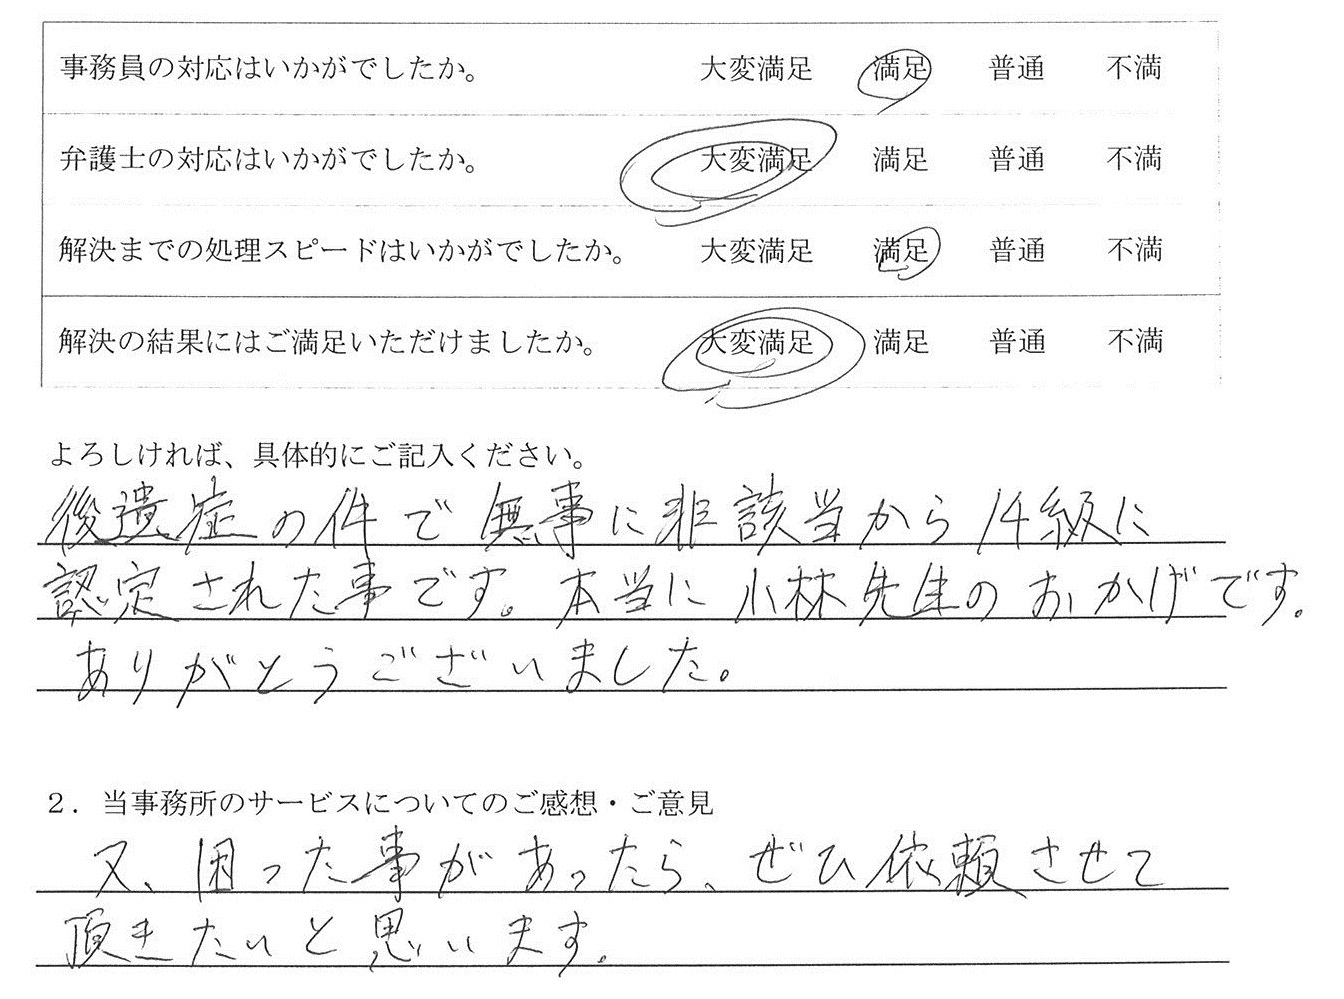 事務員の対応はいかがでしたか。 大変満足 満足 普通 不満
弁護士の対応はいかがでしたか。 大変満足 満足 普通 不満
解決までの処理スピードはいかがでしたか。 大変満足 満足 普通 不満
解決の結果にはご満足いただけましたか。 大変満足 満足 普通 不満
よろしければ、具体的にご記入ください。
後遺症の件で無事に非該当から14級に
認定された事です。本当に小林先生のおかげです。
ありがとうございました。
２．当事務所のサービスについてのご感想・ご意見
又、困った事があったら、ぜひ依頼させて
頂きたいと思います。